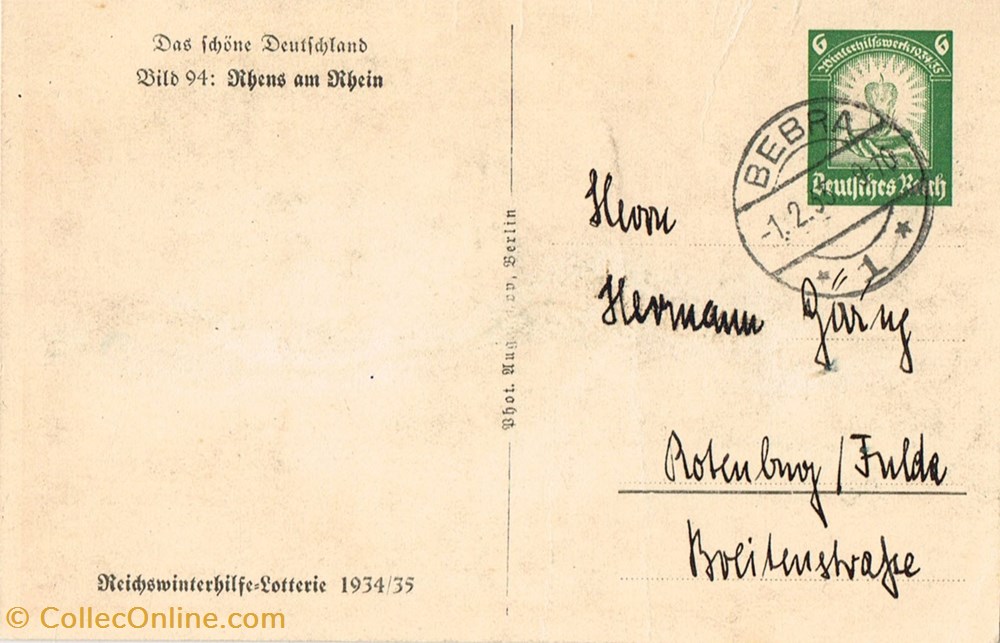 Das schöne Deutschland
Bild 94: Rhens am Rhein
6 6
Winterhilfswerk 1934/35
Deutsches Reich
BEBRA
-1.2.35
1
Herrn
Hermann
Rotenburg/Fulda
Breitenstraße
Phot. Aug. Berlin
Reichswinterhilfe=Lotterie 1934/35
© CollecOnline.com